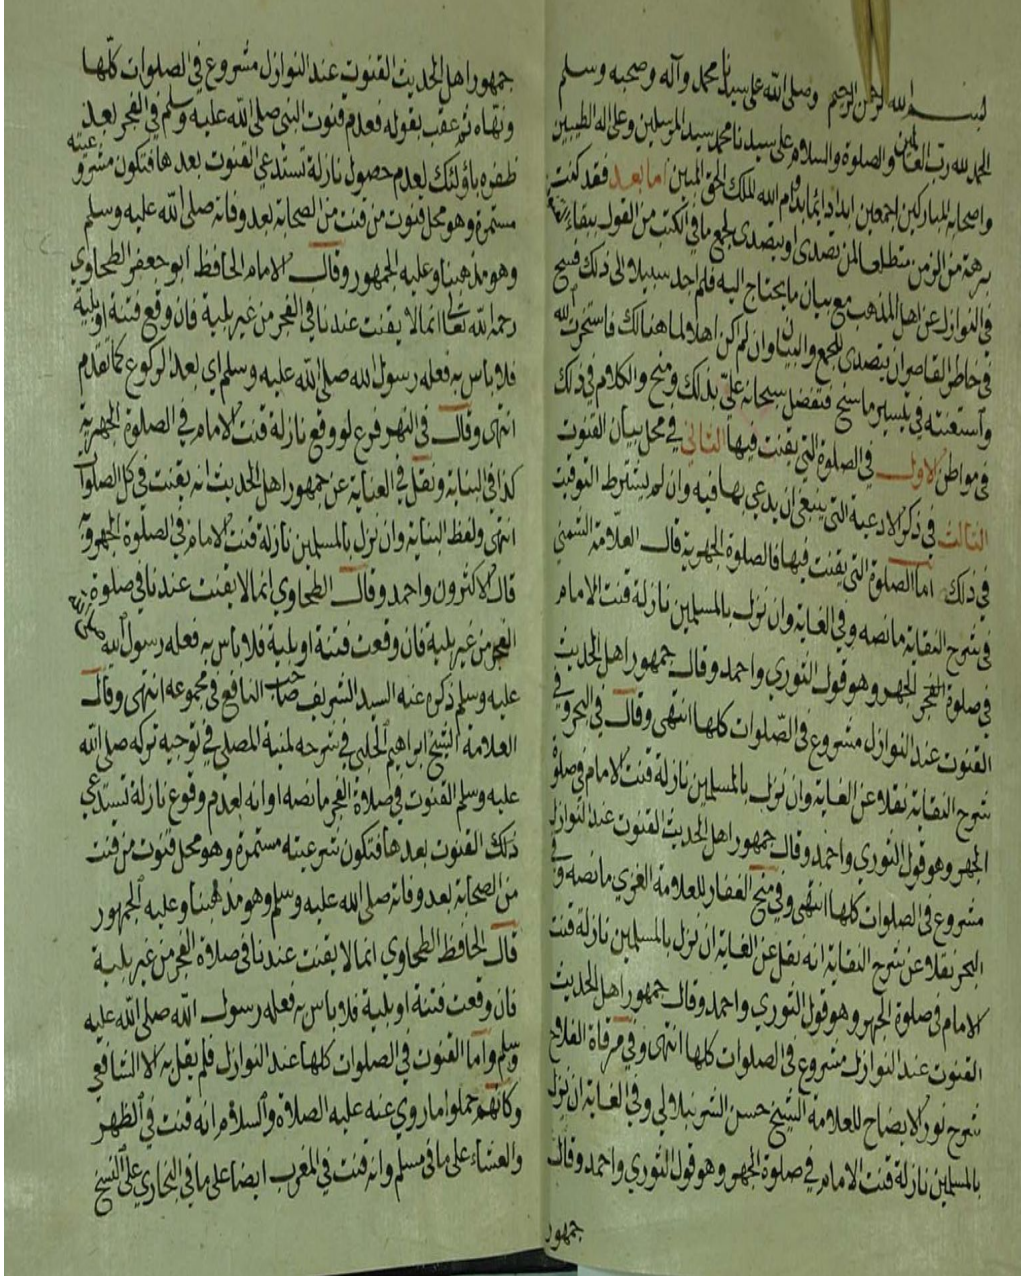 بسم الله الرحمن الرحيم وصلى الله على سيدنا محمد وآله وصحبه وسلم
الحمد لله رب العالمين والصلوة والسلام على سيدنا محمد سيد المرسلين وعلى اله الطيبين
واصحابه المباركين اجمعين ابدا دائما بدوام الله الملك الحق المبين اما بعد فقد كنت
برهة من الزمن متطلعا لمن تصدى او يتصدى لجمع ما في الكتب من القول ببقاء
في النوازل عن اهل المذهب مع بيان ما يحتاج اليه فلم اجد سبيلا الى ذلك فسنح
في خاطر القاصر ان يتصدى للجمع والبيان وان لم اكن اهلا لما هنالك فاستخرت الله
واستعنته في تيسير ما سنح فتفضل سبحانه علي بذلك ومنح والكلام في ذلك
في مواطن الاول في الصلوة التي يقنت فيها الثاني في محل بيان القنوت
الثالث في ذكر الادعية التي ينبغي ان يدعى بها فيه وان لم يشترط التوقيت
في ذلك اما الصلوة التي يقنت فيها فالصلوة الجهرية قال العلامة الشمني
في شرح النقاية ما نصه وفي الغاية وان نزل بالمسلمين نازلة قنت الامام
في صلوة الفجر الجهر وهو قول الثوري واحمد وقال جمهور اهل الحديث
القنوت عند النوازل مشروع في الصلوات كلها انتهى وقال في البحر وفي
شرح النقاية نقلا عن الغاية وان نزل بالمسلمين نازلة قنت الامام في صلوة
الجهر وهو قول الثوري واحمد وقال جمهور اهل الحديث القنوت عند النوازل
مشروع في الصلوات كلها انتهى وفي منح الغفار للعلامة الغزي ما نصه وفي
البحر نقلا عن شرح النقاية انه نقل عن الغاية ان نزل بالمسلمين نازلة قنت
الامام في صلوة الجهر وهو قول الثوري واحمد وقال جمهور اهل الحديث
القنوت عند النوازل مشروع في الصلوات كلها انتهى وفي مرقاة الفلاح
شرح نور الايضاح للعلامة الشيخ حسن الشرنبلالي وفي الغاية ان نزل
بالمسلمين نازلة قنت الامام في صلوة الجهر وهو قول الثوري واحمد وقال
جمهور
جمهور اهل الحديث القنوت عند النوازل مشروع في الصلوات كلها
ونقاه ثم عقب بقوله فعدم قنوت النبي صلى الله عليه وسلم في الفجر بعد
ظفره باولئك لعدم حصول نازلة تستدعي القنوت بعدها فتكون مشروعيته
مستمرة وهو محل قنوت من قنت من الصحابة بعد وفاته صلى الله عليه وسلم
وهو مذهبنا وعليه الجمهور وقال الامام الحافظ ابو جعفر الطحاوي
رحمه الله تعالى انما لا يقنت عندنا في الفجر من غير بلية فان وقع فتنة او بلية
فلا باس به فعله رسول الله صلى الله عليه وسلم اي بعد الركوع كما تقدم
انتهى وقال في النهر فرع لو وقع نازلة قنت الامام في الصلوة الجهرية
كذا في البناية ونقل في العناية عن جمهور اهل الحديث انه يقنت في كل الصلوات
انتهى ولفظ البناية وان نزل بالمسلمين نازلة قنت الامام في الصلوة الجهرية
قال الاكثرون واحمد وقال الطحاوي انما لا يقنت عندنا في صلوة
الفجر من غير بلية فان وقعت فتنة او بلية فلا باس به فعله رسول الله صلى الله
عليه وسلم ذكره عنه السيد الشريف صاحب النافع في مجموعه انتهى وقال
العلامة الشيخ ابراهيم الحلبي في شرحه لمنية المصلي في توجيه تركه صلى الله
عليه وسلم القنوت في صلاة الفجر ما نصه او انه لعدم وقوع نازلة تستدعي
ذلك القنوت بعدها فتكون شرعيته مستمرة وهو محل قنوت من قنت
من الصحابة بعد وفاته صلى الله عليه وسلم وهو مذهبنا وعليه الجمهور
قال الحافظ الطحاوي انما لا يقنت عندنا في صلاة الفجر من غير بلية
فان وقعت فتنة او بلية فلا باس به فعله رسول الله صلى الله عليه
وسلم واما القنوت في الصلوات كلها عند النوازل فلم يقل به الا الشافعي
وكانهم حملوا ما روي عنه عليه الصلاة والسلام انه قنت في الظهر
والعشاء على ما في مسلم وانه قنت في المغرب ايضا على ما في البخاري على النسخ